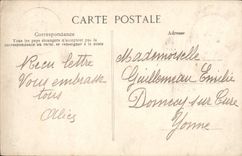 CARTE POSTALE
Correspondance
Tous les pays étrangers n'acceptent pas
la correspondance au recto, se renseigner à la poste
Adresse
Reçu lettre
Vous embrasse
tous
Mademoiselle
Guillemeau Emilie
Domecy sur Cure
Yonne